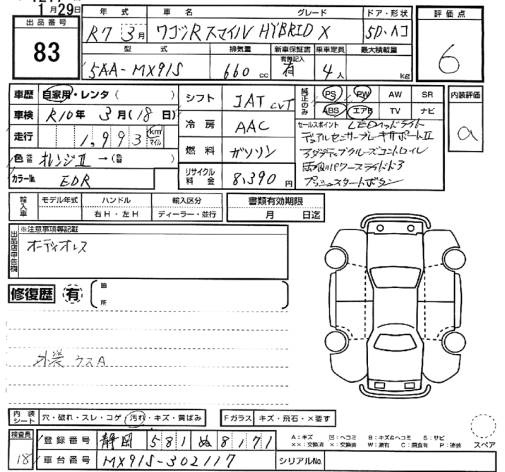 1月29日
出品番号 83
年式 車名 グレード ドア・形状 評価点
R7 3月 ワゴンRスマイル HYBRID X 5D・ハコ 6
型式 排気量 新車保証書 乗車定員 最大積載量
5AA-MX91S 660 cc 有 4人 kg
車歴 自家用・レンタ( )
車検 R10年 3月(18日)
走行 1,993 km マイル
色 オレンジII →( 色)
カラーNo. EDR
シフト IAT CVT
冷房 AAC
燃料 ガソリン
リサイクル料金 8,390円
純正のみ PS PW AW SR
ABS エアB TV ナビ
内装評価 a
セールスポイント LEDヘッドライト
デュアルセンサーブレーキサポートII
アダプティブクルーズコントロール
両側パワースライドドア
プッシュスタートボタン
輸入車 モデル年式 ハンドル 輸入区分 書類有効期限
年 右H・左H ディーラー・並行 月 日迄
出品店申告欄 ※注意事項等記載
オーディオレス
修復歴 有 箇所
外装 ウスA
内装シート 穴・破れ・スレ・コゲ・汚れ・キズ・黄ばみ Fガラス キズ・飛石・×要す
検査員 18
登録番号 静岡 581 ぬ 8171
車台番号 MX91S-302117 シリアルNo.
A:キズ E:ヘコミ B:キズ&ヘコミ S:サビ
××:交換済 ×:要交換 W:波有 C:腐食有 P:塗装
スペア